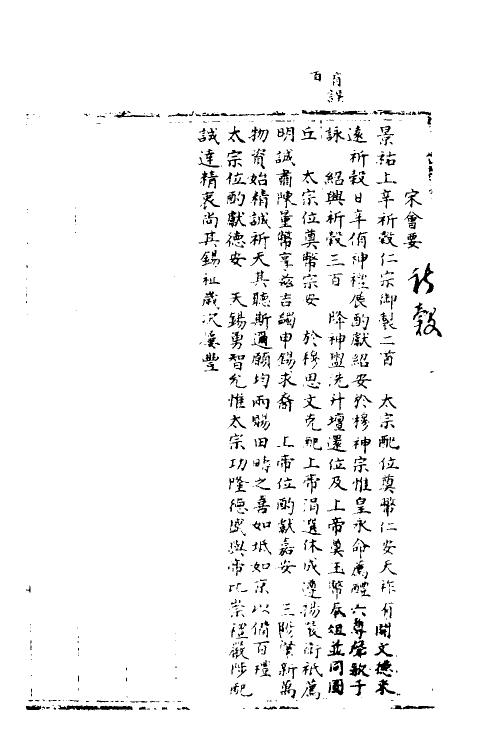 百 肯誤
宋會要 祈穀
景祐上辛祈穀仁宗御製二首 太宗配位奠幣仁安天祚有開文德來
遠祈穀日辛侑神禮展酌獻紹安於穆神宗惟皇永命薦醴六尊聲歌千
詠 紹興祈穀三百 降神盥洗升壇還位及上帝奠玉幣奉俎並同圜
丘 太宗位奠幣宗安 於穆思文克配上帝涓選休成遵揚嚴衛祇薦
明誠肅陳量幣享茲吉蠲申錫來裔 上帝位酌獻嘉安 三陽肇新萬
物資始精誠祈天其聽斯邇願均雨暘田疇之喜如坻如京以備百禮
太宗位酌獻德安 天錫勇智允惟太宗功隆德盛與帝比崇禮嚴陟配
誠達精衷尚其錫祉歲次屢豐